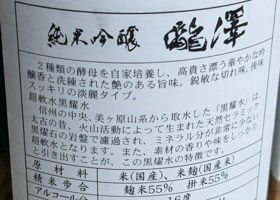 純米吟醸 瀧澤
2種類の酵母を自家培養し、高貴さ漂う華やかな吟
醸香と洗練された艶のある旨味。鋭敏な切れ味、後味
スッキリの淡麗タイプ。
超軟水黒耀水
信州の中央、美ヶ原山系から取水した「黒耀水」は、
太古の昔、火山活動によって生まれた天然セラミック
黒燿石の岩盤で濾過され、ミネラル分が非常に
超軟水となります。また、素材の香りや味をしっかり
と引き出すことが、この黒耀水の特徴です。
原材料 米(国産)、米麹(国産米)
精米歩合 麹米55% 掛米55%
アルコール分 16度